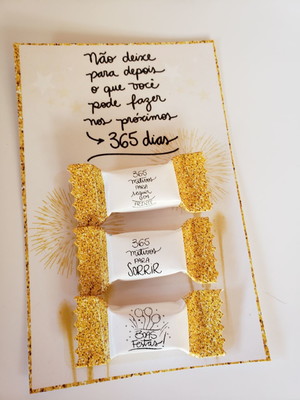 Não deixe
para depois
o que você
pode fazer
nos próximos
→ 365 dias
365
motivos
para
seguir
em
365
motivos
para
SORRIR
Boas
Festas!